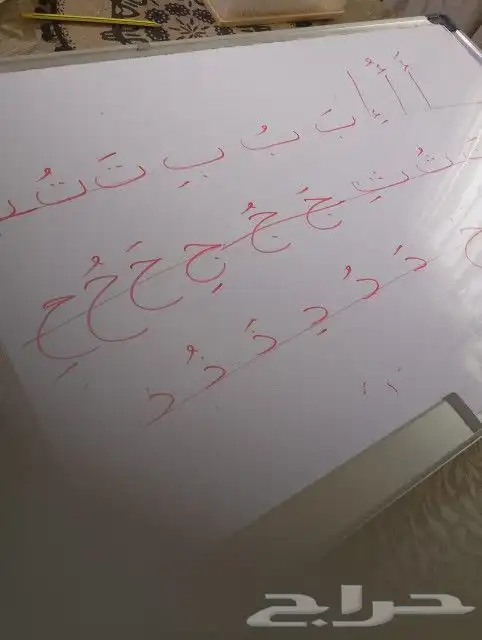 أَ أُ إِ بَ بُ بِ تَ تُ
ثُ ثِ جَ جُ جِ حَ حُ حِ
دَ دُ دِ ذَ ذُ ذ
حراج